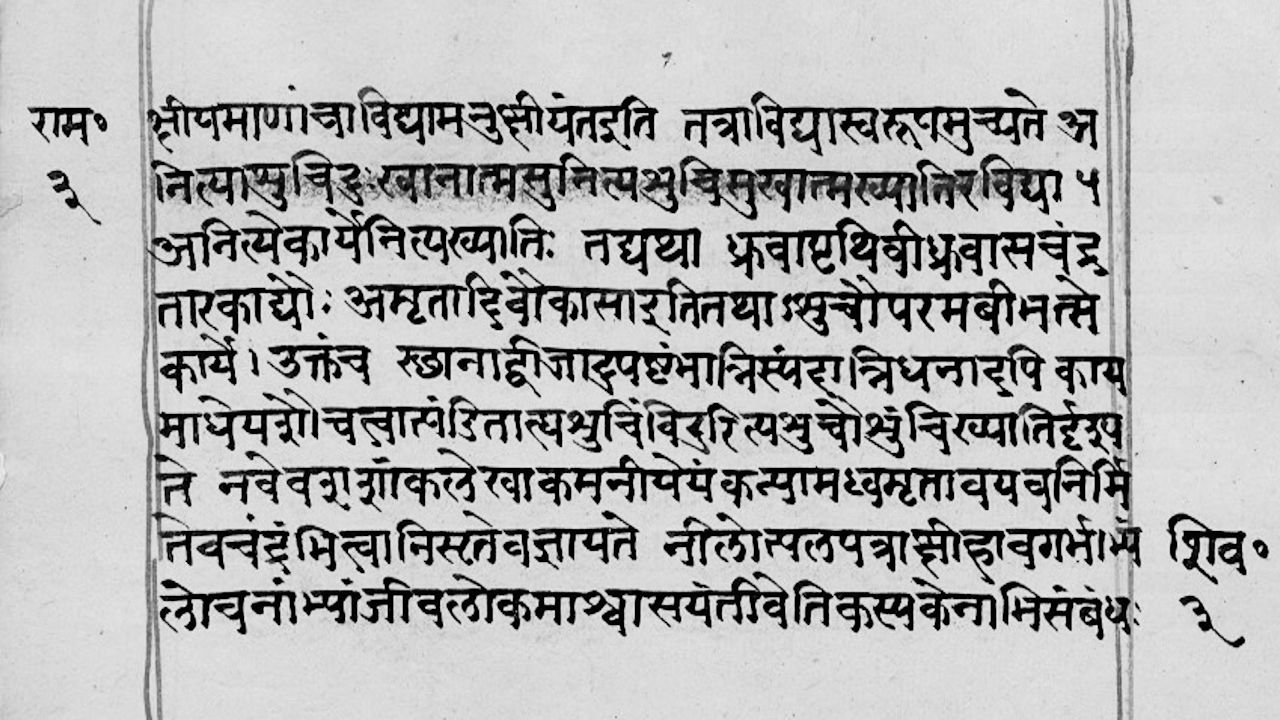 राम॰ क्षीयमाणांचाविद्यामनुक्षीयंतइति तत्राविद्यास्वरूपमुच्यते अ
३ नित्याशुचिदुःखानात्मसुनित्यशुचिसुखात्मख्यातिरविद्या ५
अनित्येकार्येनित्यख्यातिः तद्यथा ध्रुवापृथिवीध्रुवासचंद्र
तारकाद्यौः अमृतादिवौकासाइतितथाऽसुचौपरमबीभत्से
कार्ये। उक्तंच स्छानाद्बीजादुपष्टंभान्निस्पंदान्निधनादपि काय
माधेयशौचत्वात्पंडितात्यशुचिंविदुरित्यशुचौशुंचिख्यातिर्दृश्य
ते नवेवशशांकलेखाकमनीयेयंकन्यामध्वमृतावयवनिर्मि
तेवचंद्रंभित्वानिसृतेवज्ञायते नीलोत्पलपत्राक्षीहावगर्भाभ्यं शिव॰
लोचनांभ्यांजीवलोकमाश्वासयंतीवेतिकस्यकेनाभिसंबंधः ३